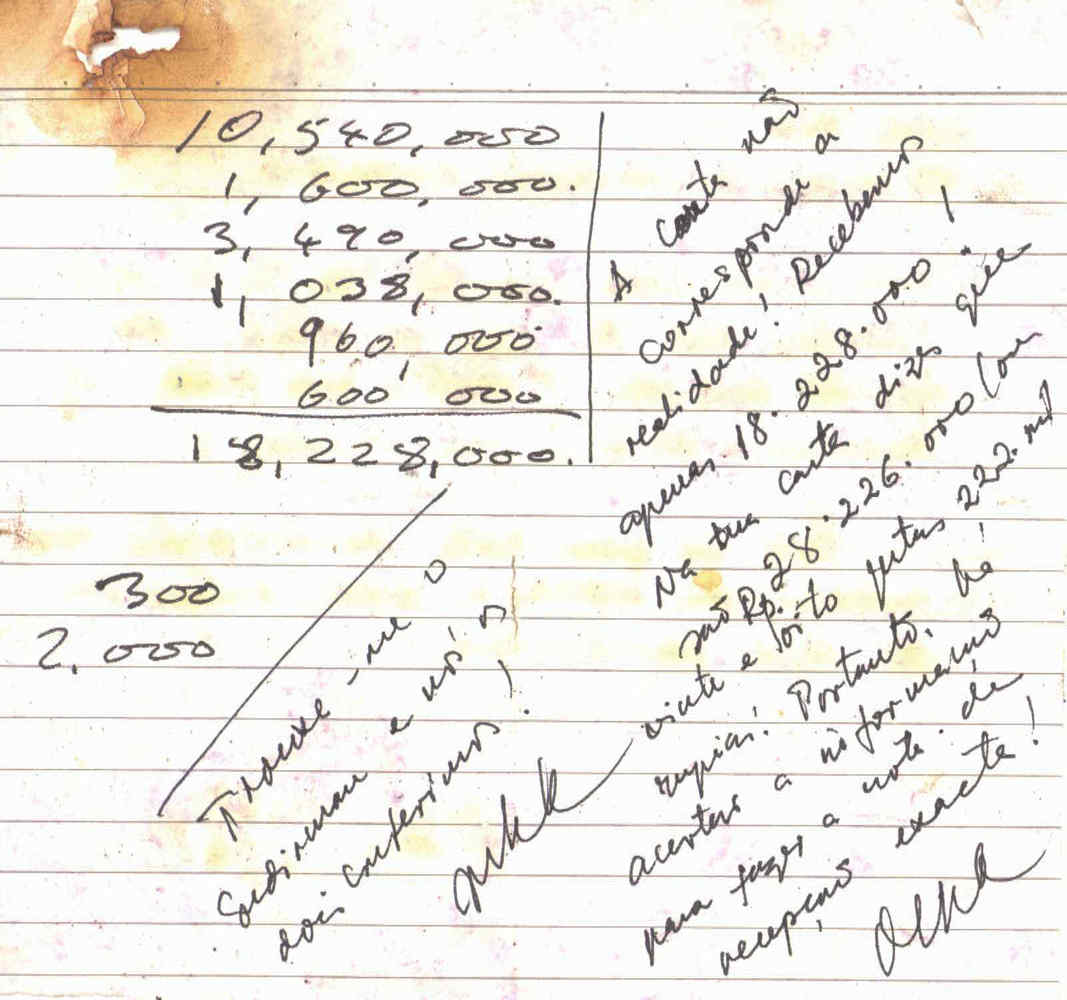 10,540,000
1,600,000.
3,490,000
1,038,000.
960,000
600 000
18,228,000.
300
2.000
Trouxe-me o
Sudirman e nós, os
dois conferimos!
A conta não
corresponde a
realidade! Recebemos
apenas 18.228.000!
Na tua carta dizes que
são Rp. 28.226.000 (ou
vinte e oito 222 mil
rupias! Portanto, há
acertar a
para fazer a nota de
recepção exacta!